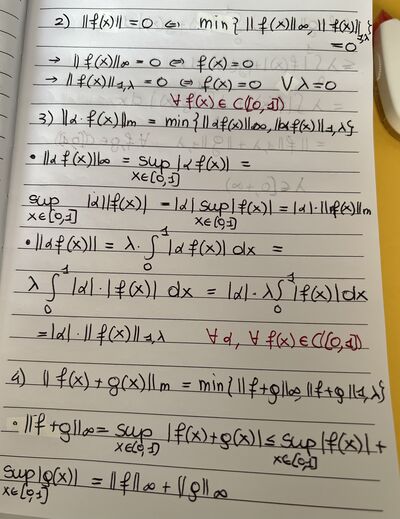 2) ||f(x)|| = 0 ⇔ min{||f(x)||∞, ||f(x)||1,λ}
= 0
→ ||f(x)||∞ = 0 ⇔ f(x) = 0
→ ||f(x)||1,λ = 0 ⇔ f(x) = 0 ∀ λ = 0
∀ f(x) ∈ C([0,1])
3) ||α·f(x)||m = min{||αf(x)||∞, ||αf(x)||1,λ}
• ||αf(x)||∞ = sup |αf(x)| =
x∈[0,1]
sup |α||f(x)| = |α| sup |f(x)| = |α|·||f(x)||m
x∈[0,1] x∈[0,1]
• ||αf(x)|| = λ·∫₀¹ |αf(x)| dx =
λ ∫₀¹ |α|·|f(x)| dx = |α|·λ ∫₀¹ |f(x)| dx
= |α|·||f(x)||1,λ ∀ α, ∀ f(x) ∈ C([0,1])
4) ||f(x) + g(x)||m = min{||f+g||∞, ||f+g||1,λ}
• ||f+g||∞ = sup |f(x)+g(x)| ≤ sup |f(x)| +
x∈[0,1] x∈[0,1]
sup |g(x)| = ||f||∞ + ||g||∞
x∈[0,1]